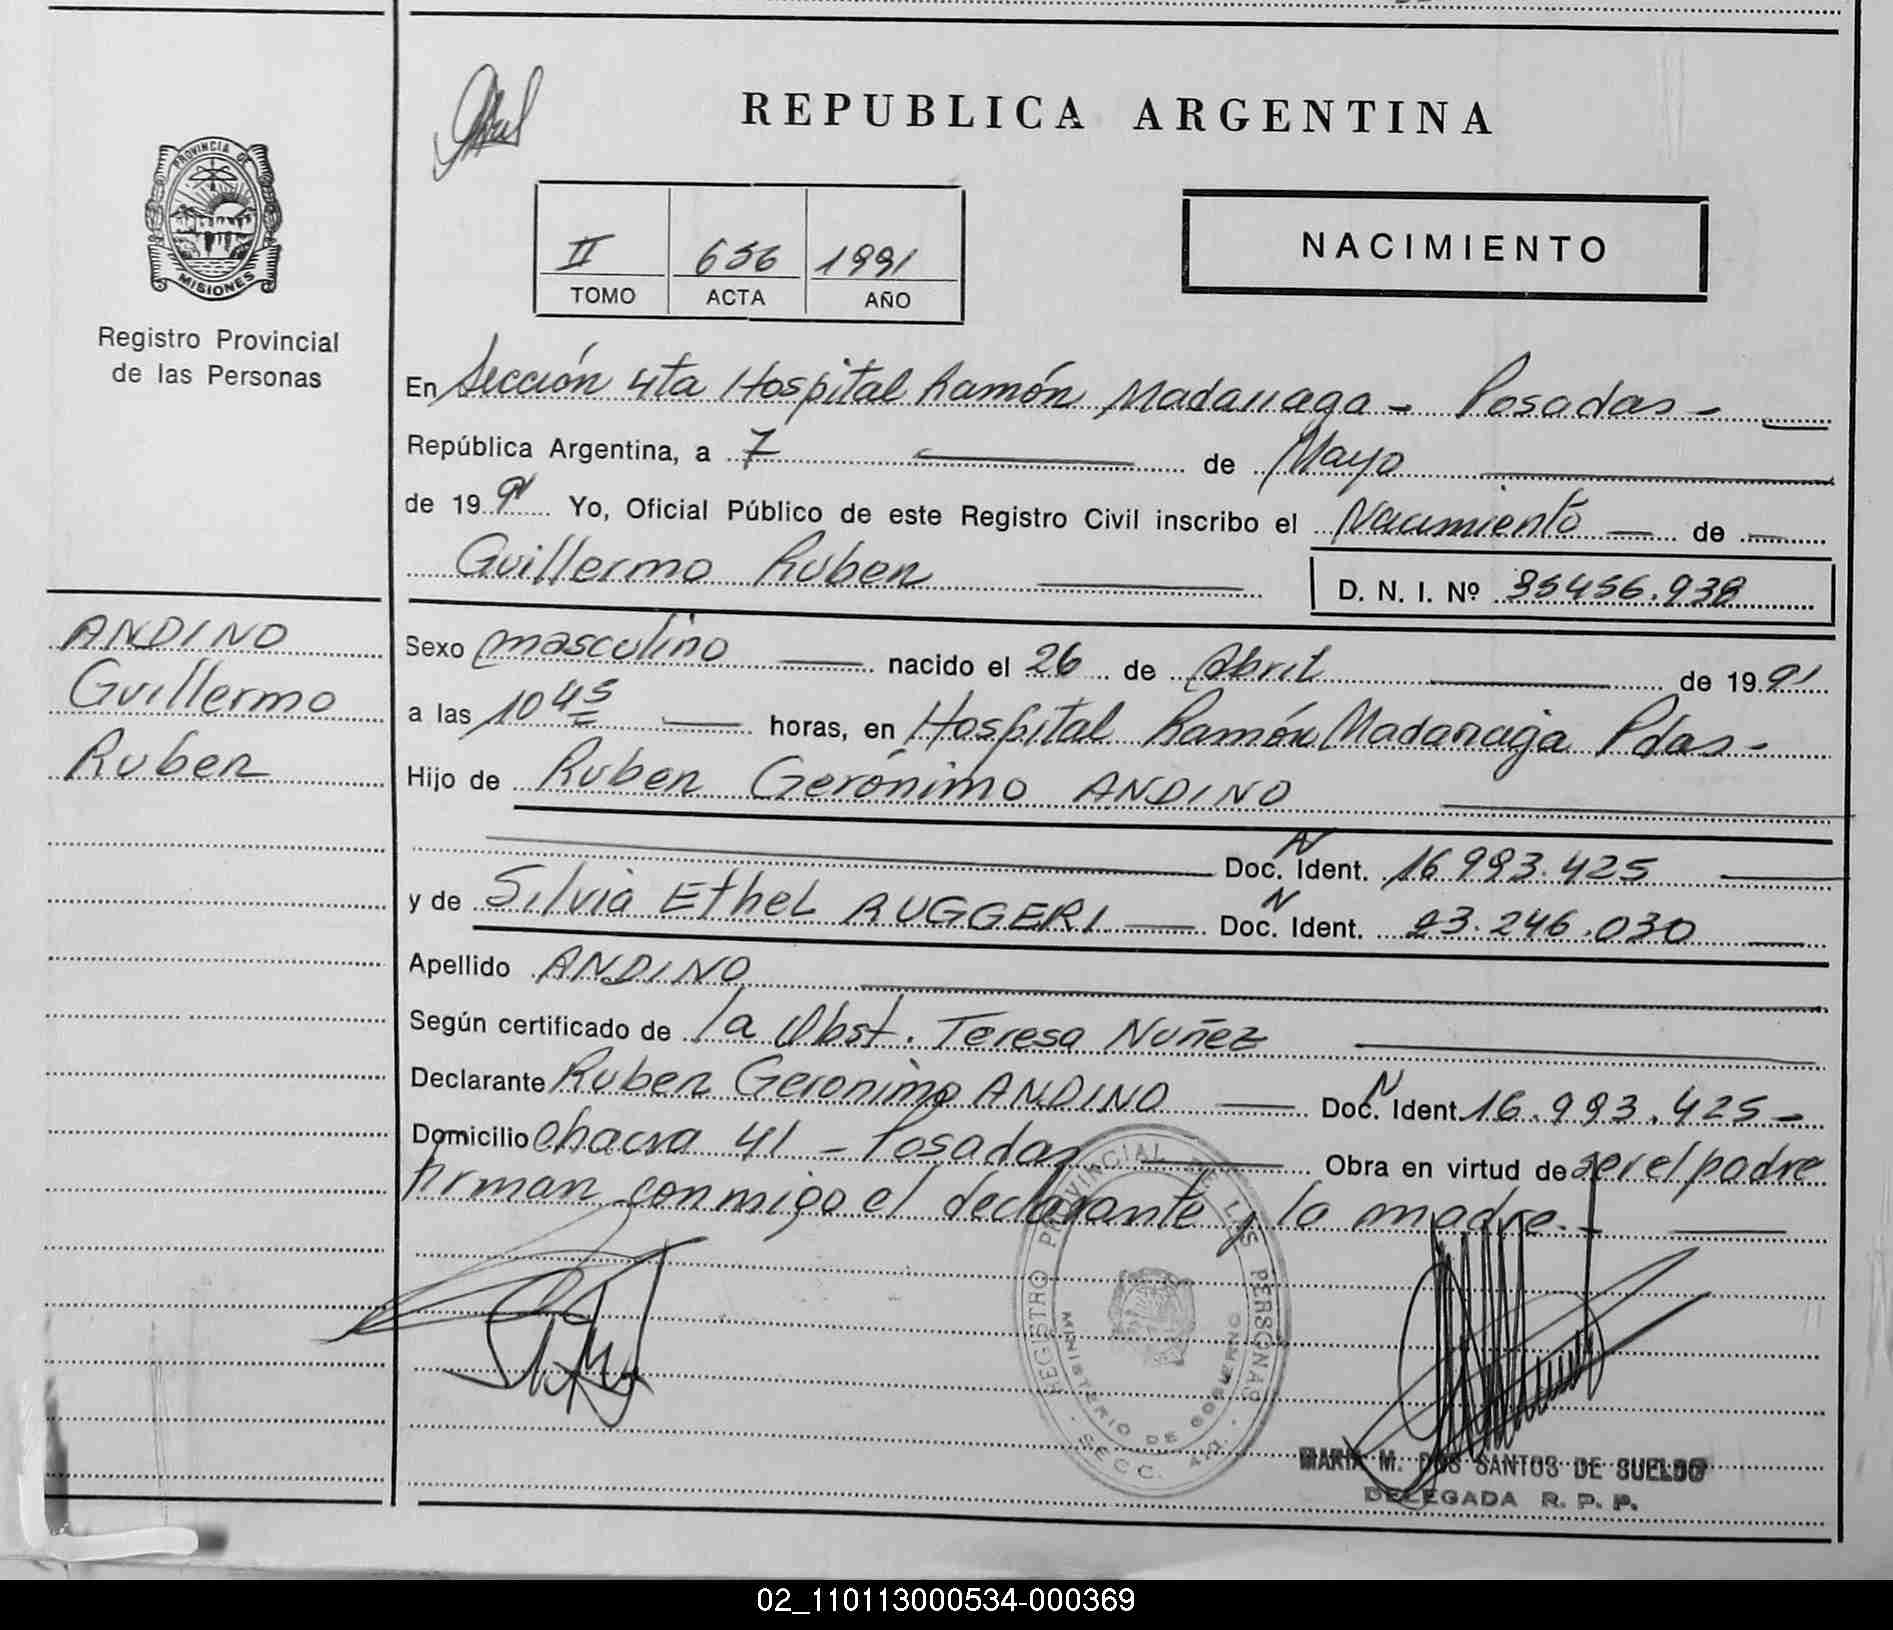 REPUBLICA ARGENTINA
PROVINCIA DE
MISIONES
Registro Provincial
de las Personas
II 636 1991
TOMO ACTA AÑO
NACIMIENTO
En Sección 4ta Hospital Ramón Madariaga - Posadas -
República Argentina, a 7 de Mayo
de 1991 Yo, Oficial Público de este Registro Civil inscribo el Nacimiento de
Guillermo Ruben D. N. I. Nº 35456.938
ANDINO
Guillermo
Ruben
Sexo masculino nacido el 26 de Abril de 1991
a las 10 45 horas, en Hospital Ramón Madariaga Pdas -
Hijo de Ruben Gerónimo ANDINO
N
Doc. Ident. 16.993.425
y de Silvia Ethel RUGGERI N Doc. Ident. 23.246.030
Apellido ANDINO
Según certificado de la Obst. Teresa Nuñez
Declarante Ruben Geronimo ANDINO N Doc. Ident. 16.993.425 -
Domicilio Chacra 41 - Posadas Obra en virtud de ser el padre
firman conmigo el declarante y la madre. -
REGISTRO PROVINCIAL DE LAS PERSONAS
MINISTERIO DE GOBIERNO
SECC. 4ta.
MARIA M. DOS SANTOS DE SUELDO
DELEGADA R. P. P.
02_110113000534-000369